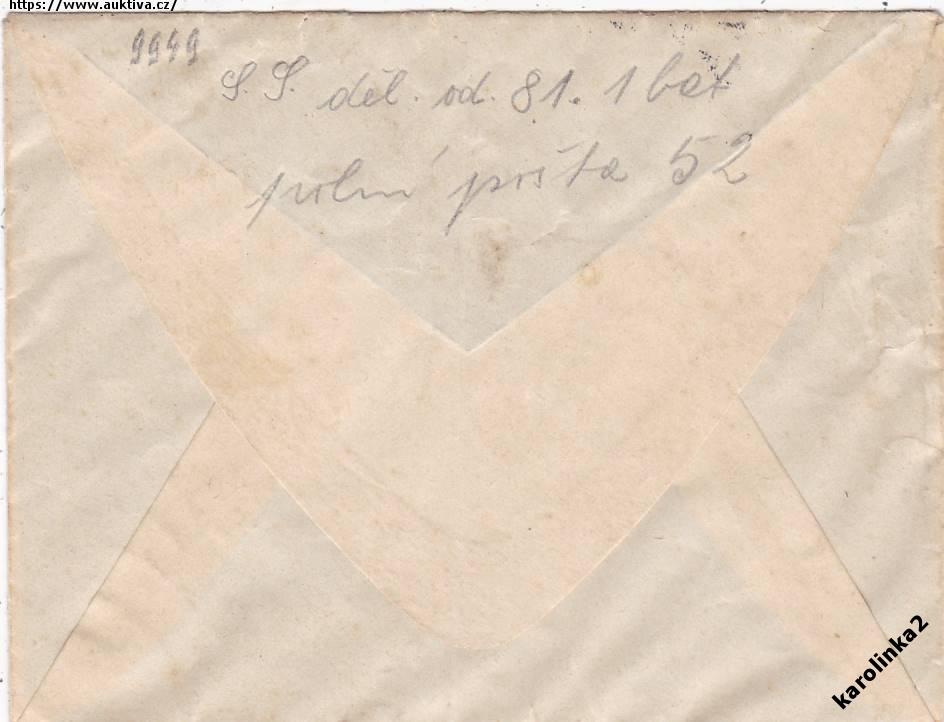 https://www.auktiva.cz/
9949
S. S. děl. od. 81. 1 bat
polní pošta 52
karolinka2